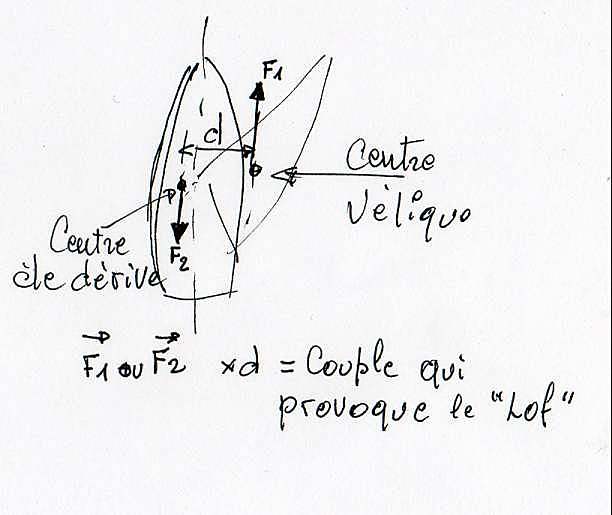 F1
d
Centre
Vèlique
Centre
de dèrive
F2
F1 ou F2 x d = Couple qui
provoque le "Lof"